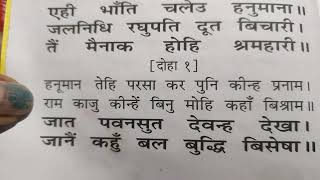 एही भाँति चलेउ हनुमाना॥
जलनिधि रघुपति दूत बिचारी।
तैं मैनाक होहि श्रमहारी॥
[दोहा १]
हनूमान तेहि परसा कर पुनि कीन्ह प्रनाम।
राम काजु कीन्हें बिनु मोहि कहाँ बिश्राम॥
जात पवनसुत देवन्ह देखा।
जानैं कहुँ बल बुद्धि बिसेषा॥